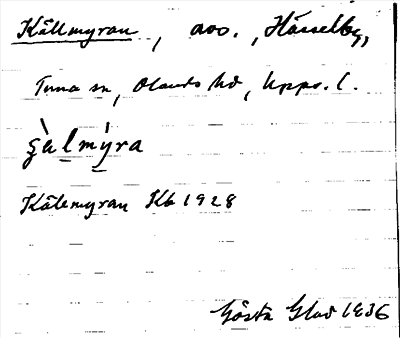 Källmyran, avs., Hässelby,
Tuna sn, Olands hd, Upps. l.
Kälemyran Kb 1928
Gösta Glad 1936